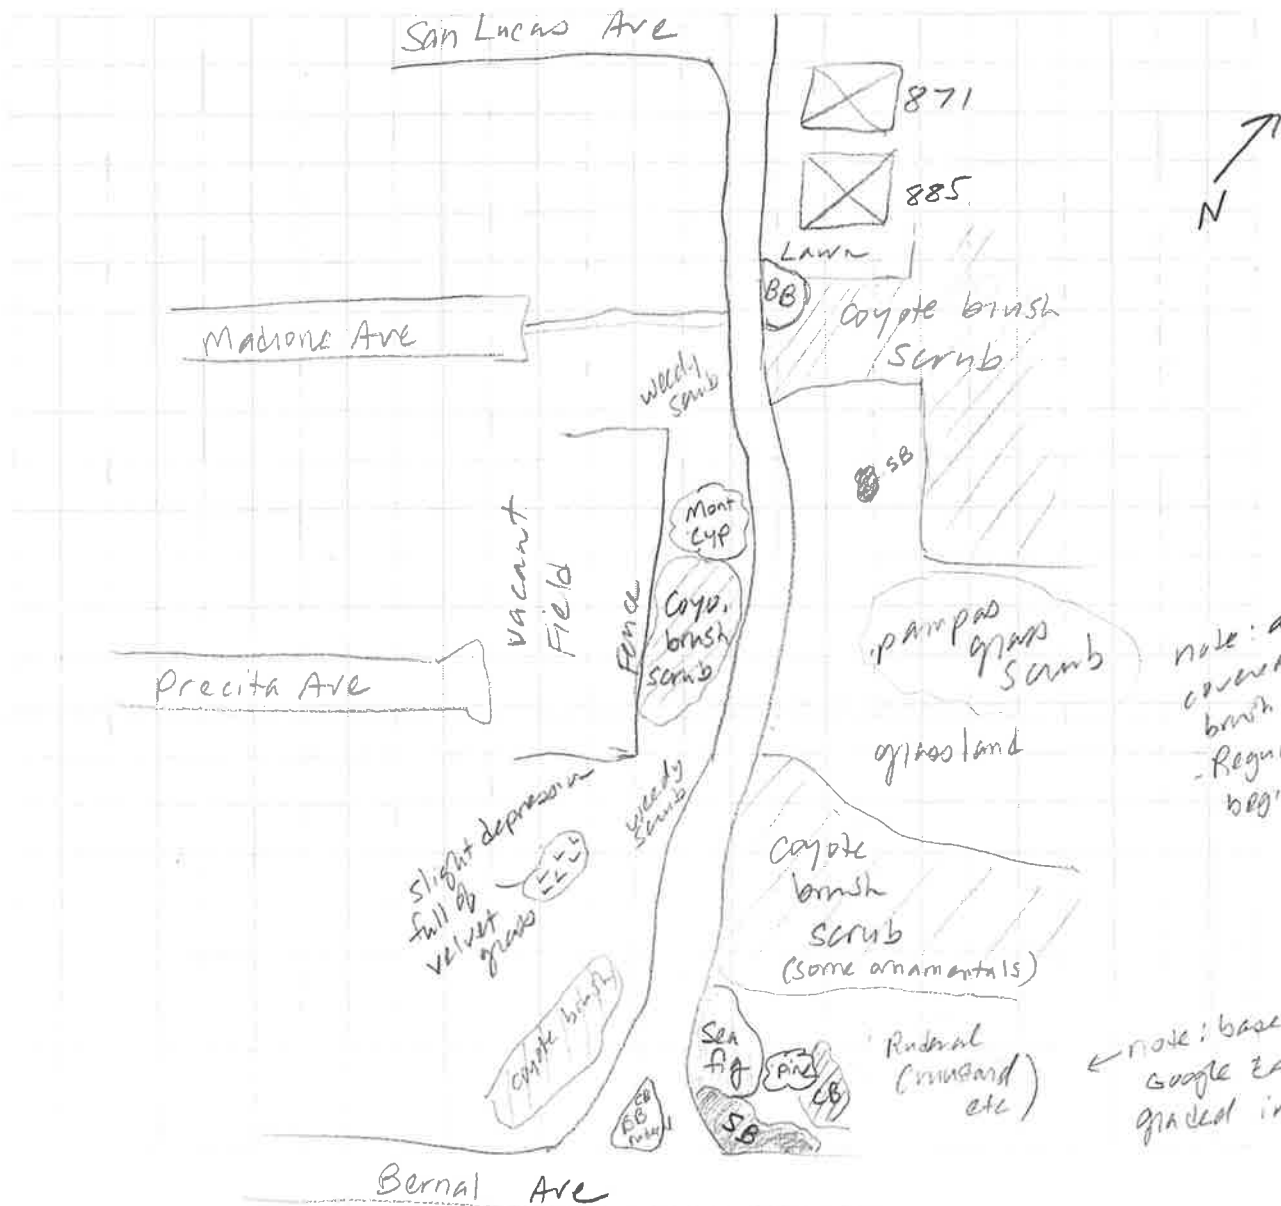 San Lucas Ave
871
885
N
Lawn
BB
Coyote brush
scrub
Madrona Ave
weedy
scrub
SB
Mont
Cyp
Vacant
Field
Fence
Coyo.
brush
scrub
pampas
grass
scrub
Precita Ave
note: a
covered
brush
- Regu
begi
grassland
weedy
scrub
slight depression
full of
velvet
grass
coyote
brush
scrub
(some ornamentals)
coyote brush
Sea
fig
pine
CB
Ruderal
(mustard
etc)
note: base
Google Ea
graded in
CB
BB
SB
Bernal Ave